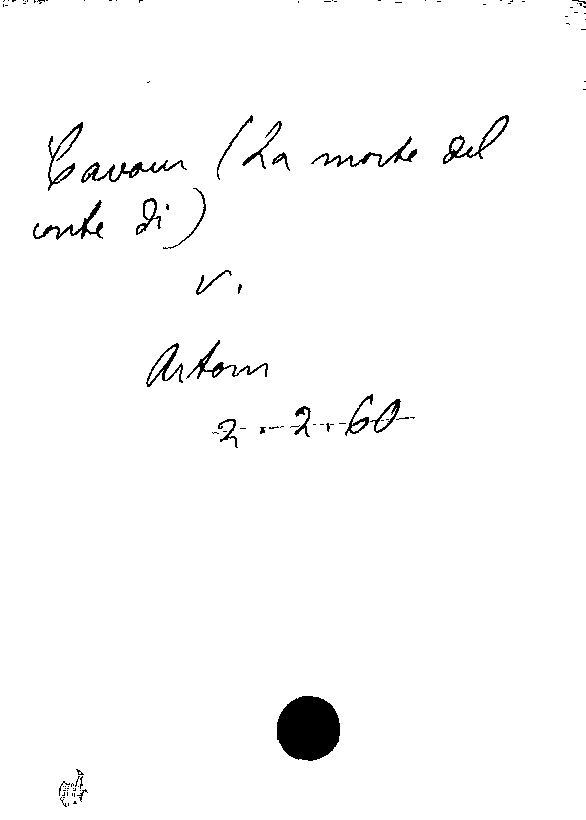 Cavour (La morte del
conte di)
v.
Artom
2.2.60